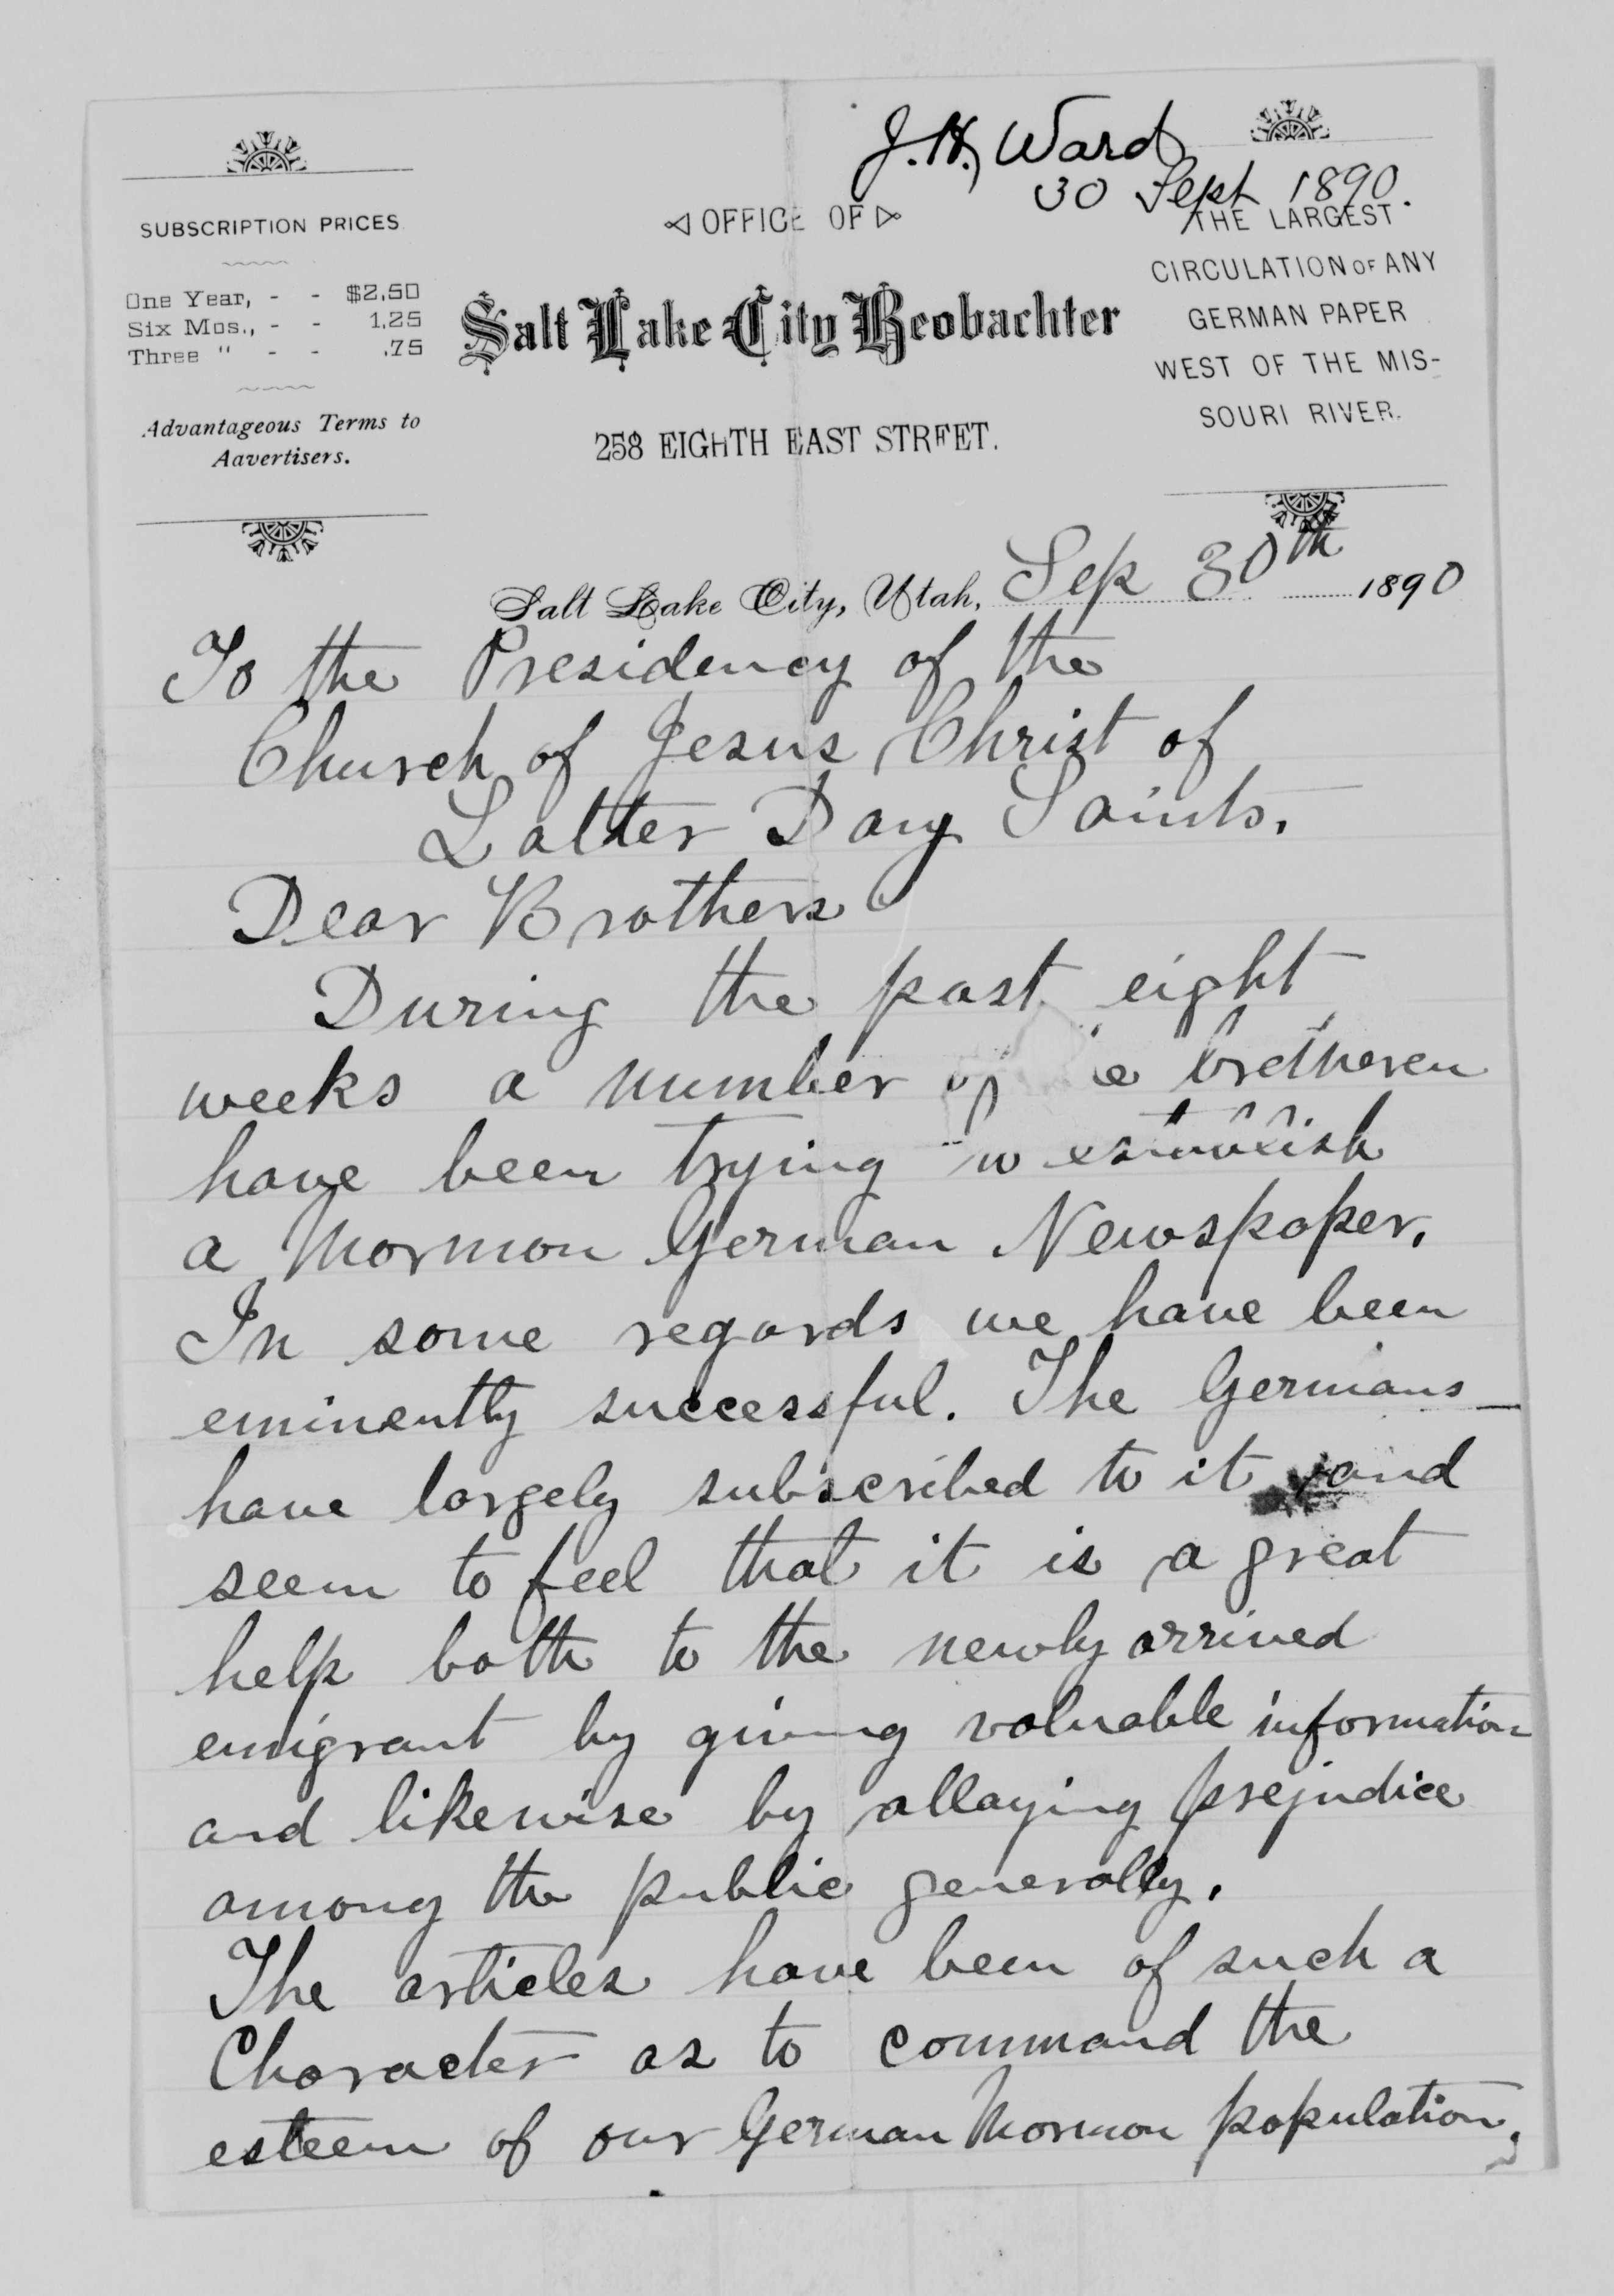 J. H. Ward
30 Sept 1890.
SUBSCRIPTION PRICES
One Year, - - $2.50
Six Mos., - - 1.25
Three " - - .75
Advantageous Terms to
Aavertisers.
OFFICE OF
Salt Lake City Beobachter
258 EIGHTH EAST STREET.
THE LARGEST
CIRCULATION OF ANY
GERMAN PAPER
WEST OF THE MIS-
SOURI RIVER.
Salt Lake City, Utah, Sep 30th 1890
To the Presidency of the
Church of Jesus Christ of
Latter Day Saints.
Dear Brothers
During the past eight
weeks a number of bretheren
have been trying to establish
a Mormon German Newspaper.
In some regards we have been
eminently successful. The Germans
have largely subscribed to it and
seem to feel that it is a great
help both to the newly arrived
emigrant by giving valuable information
and likewise by allaying prejudice
among the public generally.
The articles have been of such a
Character as to command the
esteem of our German Mormon population,